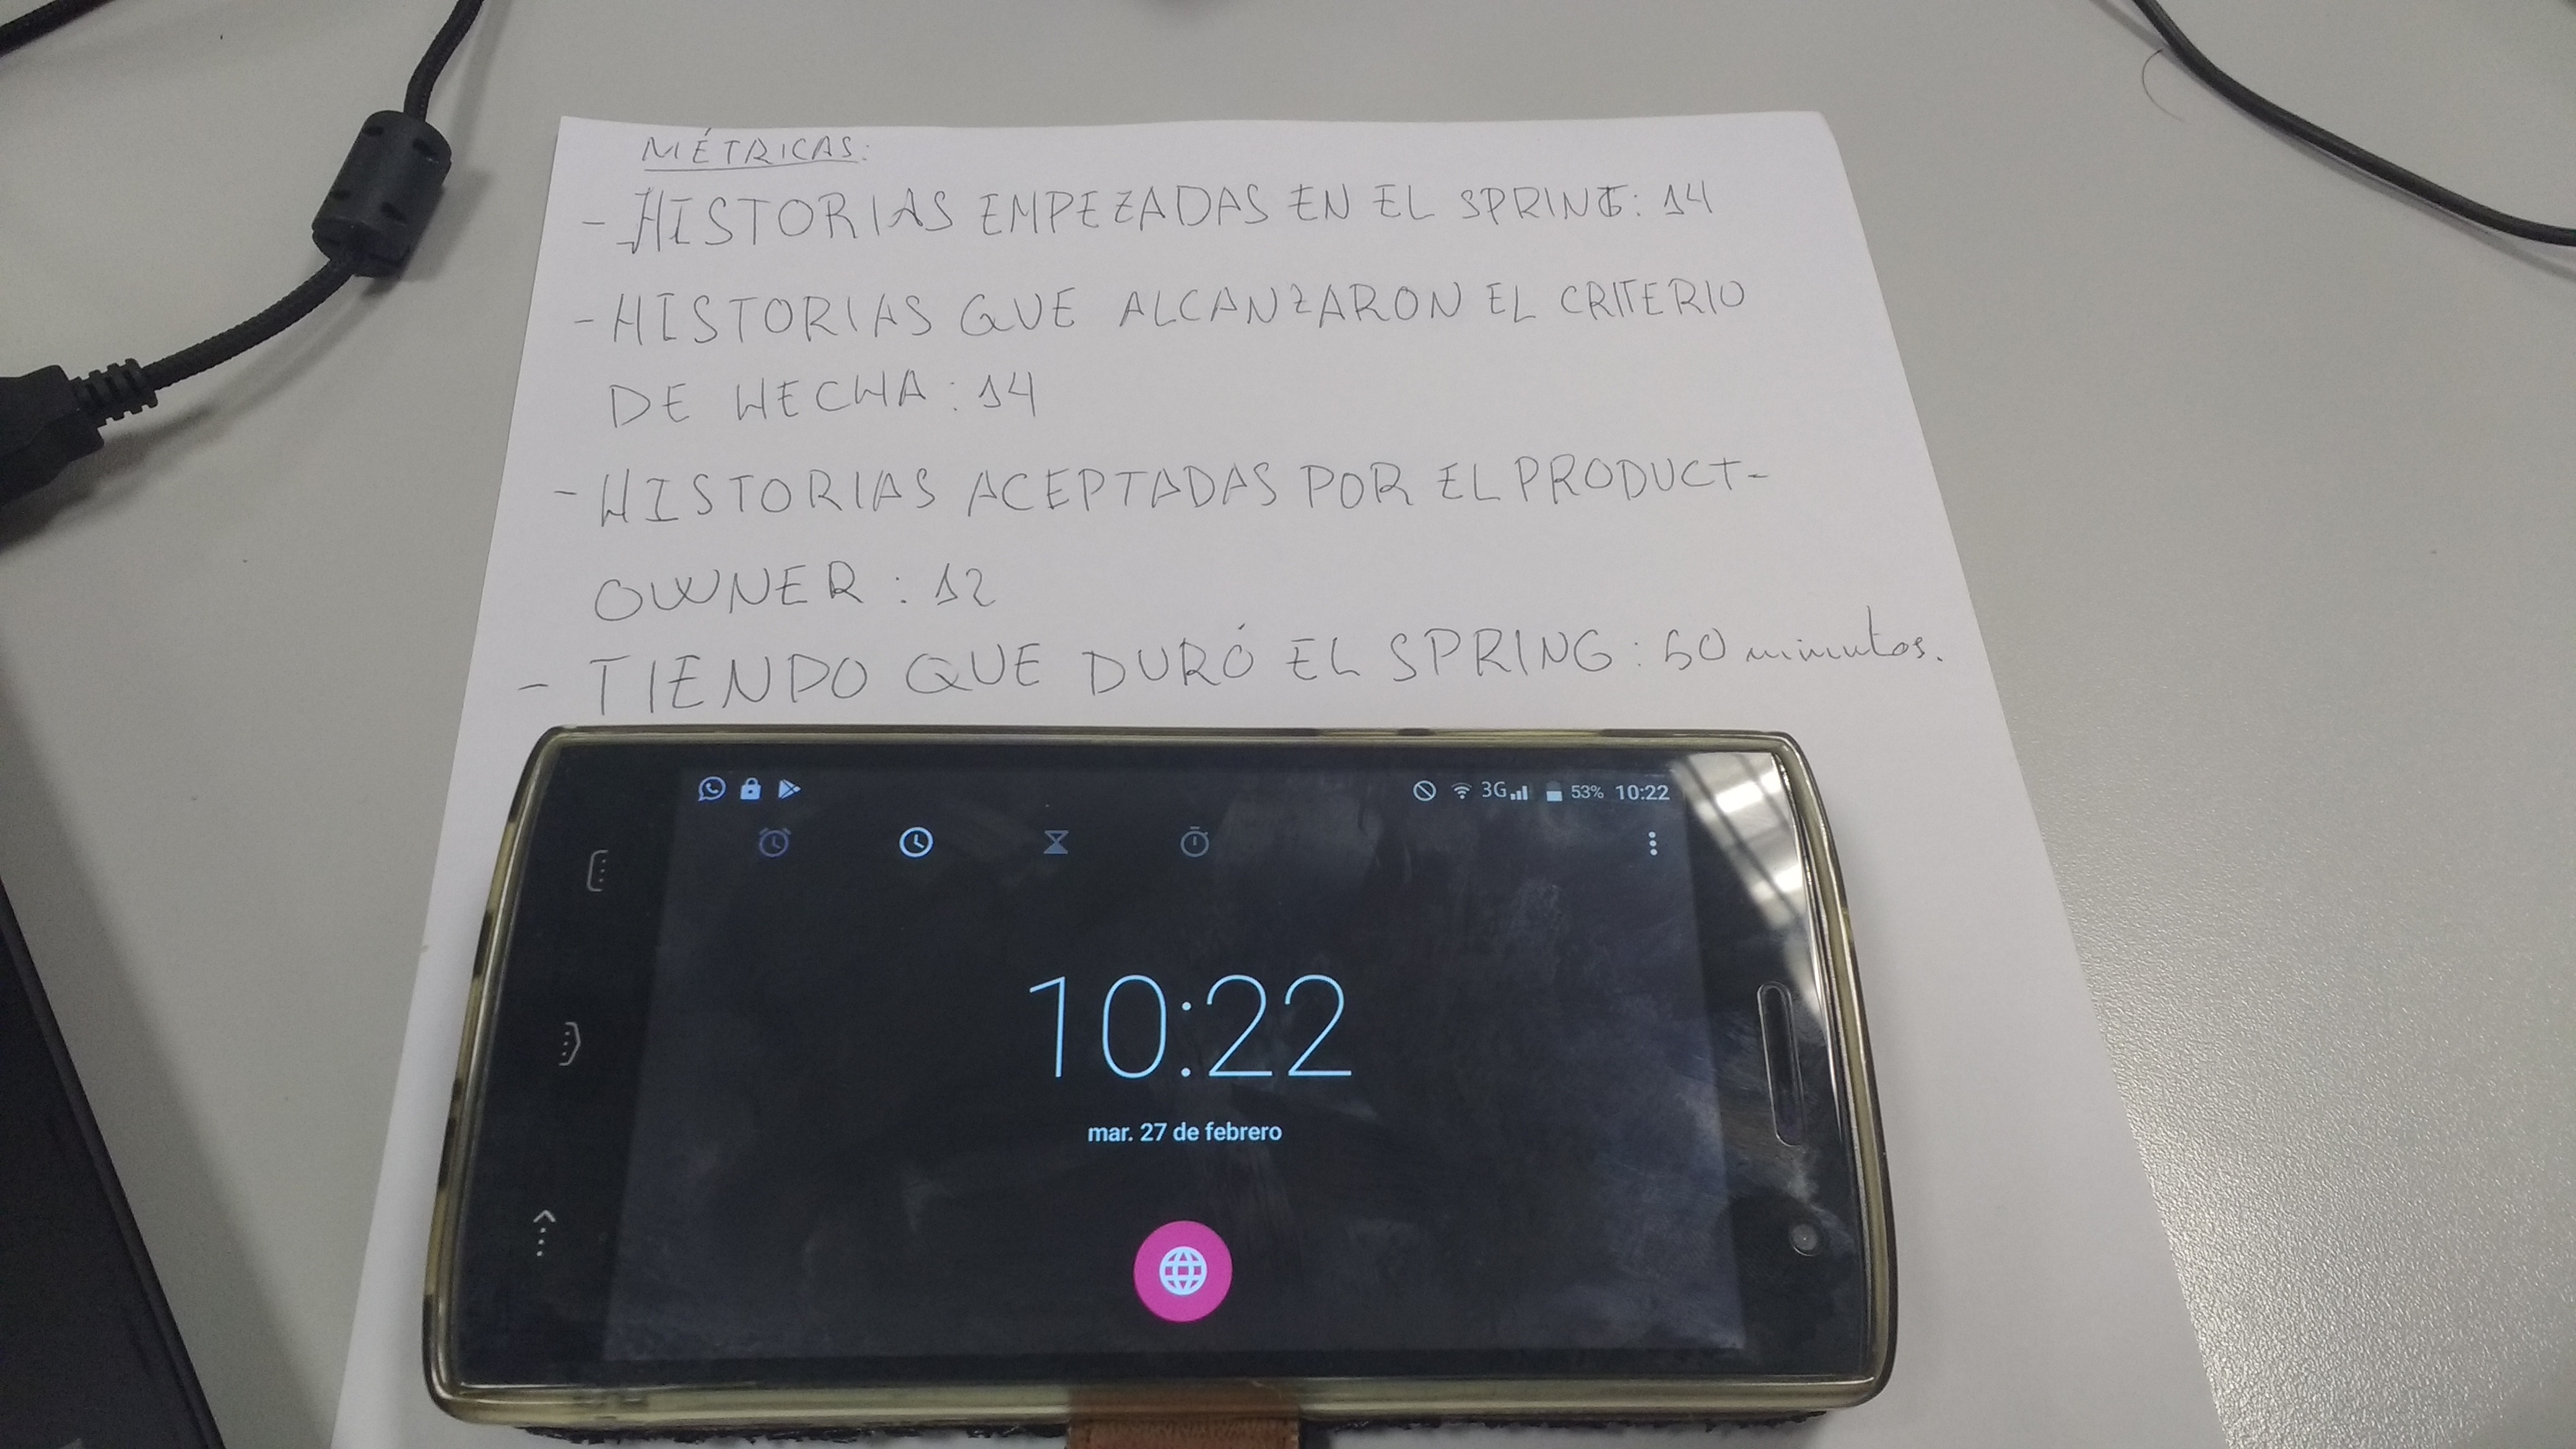 MÉTRICAS:
- HISTORIAS EMPEZADAS EN EL SPRING: 14
- HISTORIAS QUE ALCANZARON EL CRITERIO
DE HECHA: 14
- HISTORIAS ACEPTADAS POR EL PRODUCT-
OWNER: 12
- TIENDO QUE DURÓ EL SPRING: minutos.
3G 53% 10:22
10:22
mar. 27 de febrero